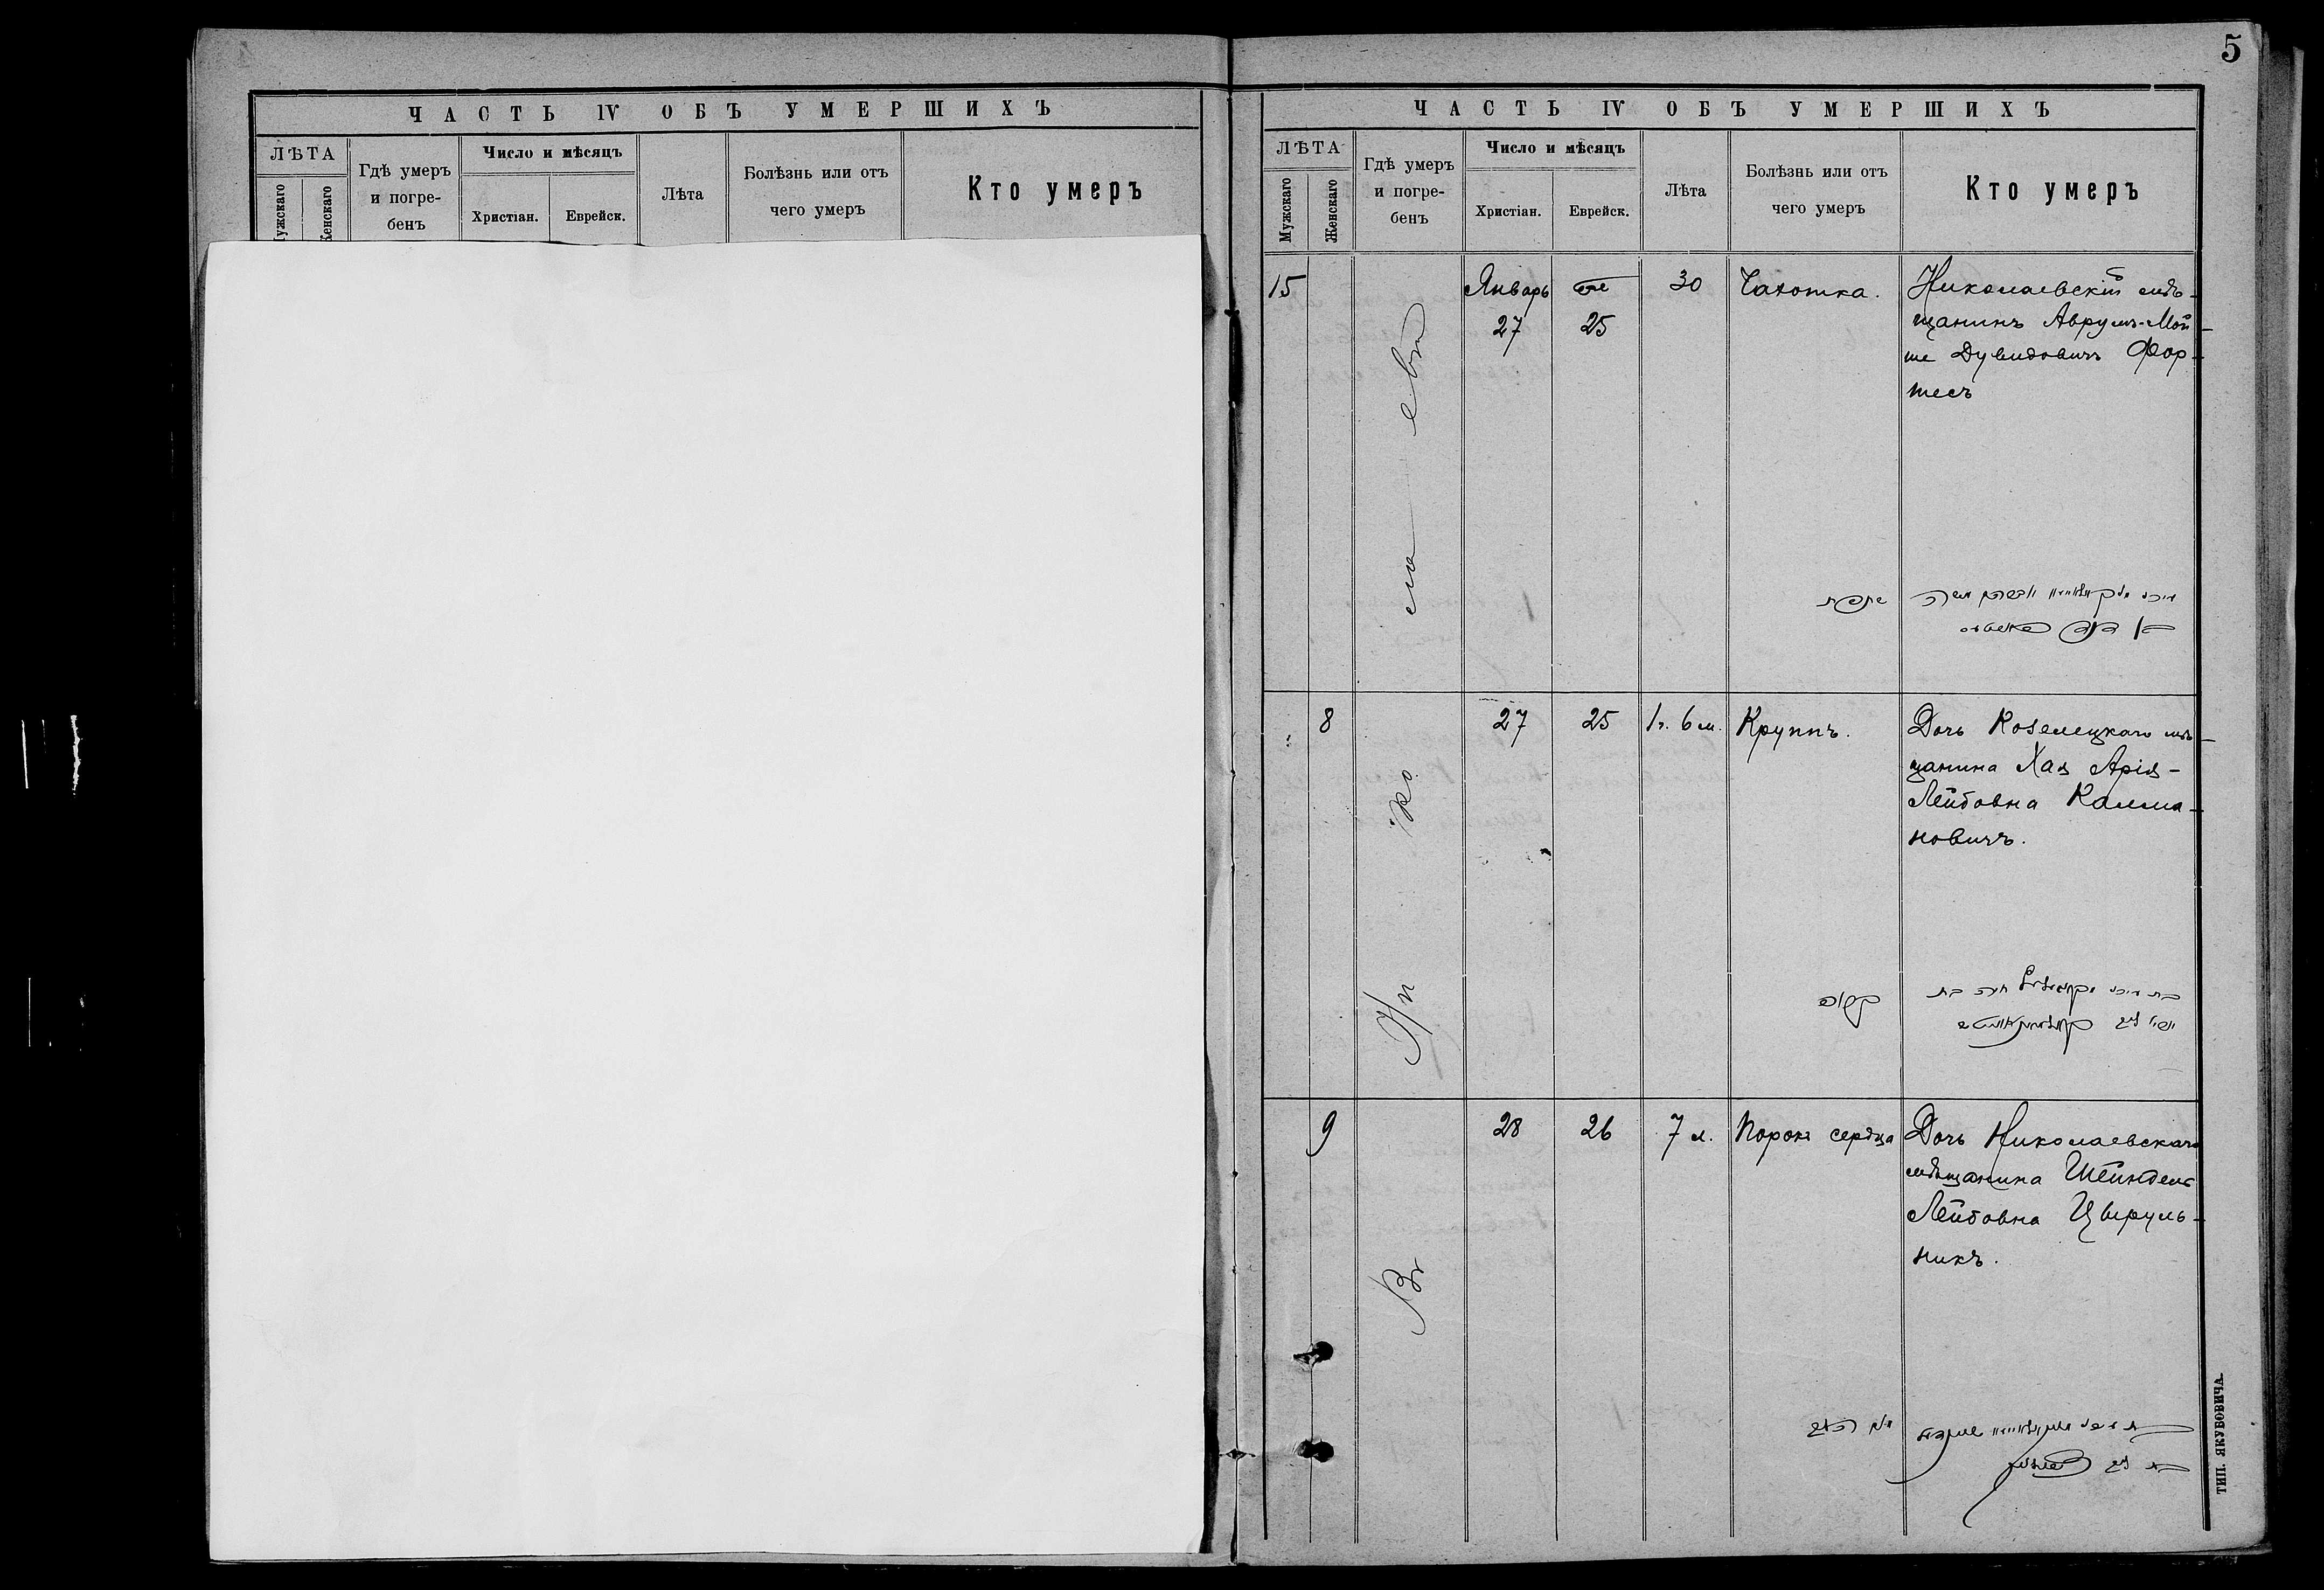 5
ЧАСТЬ IV ОБЪ УМЕРШИХЪ
ЛѢТА
Мужскаго
Женскаго
Гдѣ умеръ
и погре-
бенъ
Число и мѣсяцъ
Христіан.
Еврейск.
Лѣта
Болѣзнь или отъ
чего умеръ
Кто умеръ
ЧАСТЬ IV ОБЪ УМЕРШИХЪ
ЛѢТА
Мужскаго
Женскаго
Гдѣ умеръ
и погре-
бенъ
Число и мѣсяцъ
Христіан.
Еврейск.
Лѣта
Болѣзнь или отъ
чего умеръ
Кто умеръ
15 Январь 30 Чахотка. Николаевскій мѣ-
27 25 щанинъ Аврумъ-Мой-
ше Дувидовичъ Фор-
тесъ
8 27 25 1 г. 6 м. Крупъ. Дочь Козелецкаго мѣ-
щанина Хая Арія-
Лейбовна Калма-
новичъ.
9 28 26 7 л. Порокъ сердца Дочь Николаевскаго
мѣщанина Шейндель
Лейбовна Цыруль-
никъ.
Въ Ни ко ла евѣ
ТИП. ЯКУБОВИЧА.